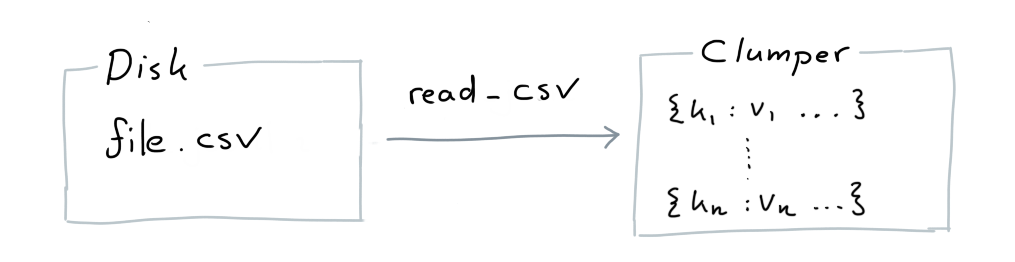 Disk
file.csv
read_csv
Clumper
{k₁ : v₁ ...}
{kn : vn ...}